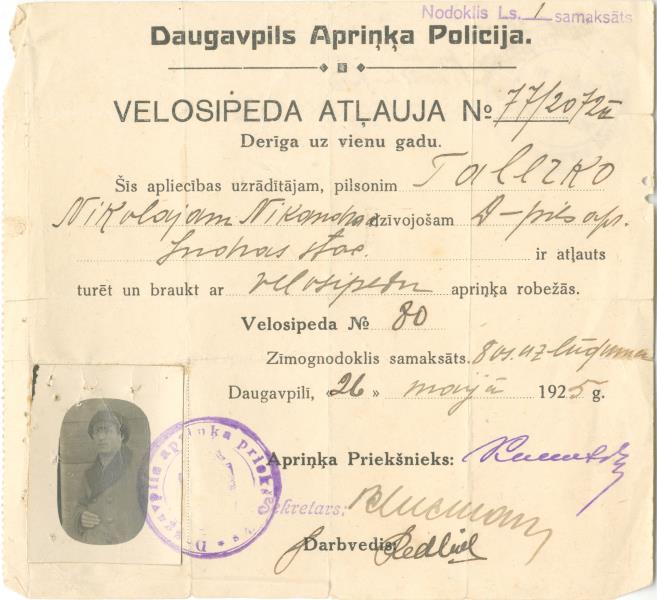 Nodoklis Ls. 1 samaksāts
Daugavpils Apriņķa Policija.
VELOSIPEDA ATĻAUJA № 77/2072
Derīga uz vienu gadu.
Šīs apliecības uzrādītājam, pilsonim Talerko
Nikolajam dzīvojošam D-pils apr.
Indras stac. ir atļauts
turēt un braukt ar velosipedu apriņķa robežās.
Velosipeda № 80
Zīmognodoklis samaksāts. uz lūguma
Daugavpilī, „26 » maijā 1925 g.
Apriņķa Priekšnieks:
Daugavpils apriņķa priekšn
Sekretars:
Darbvedis: